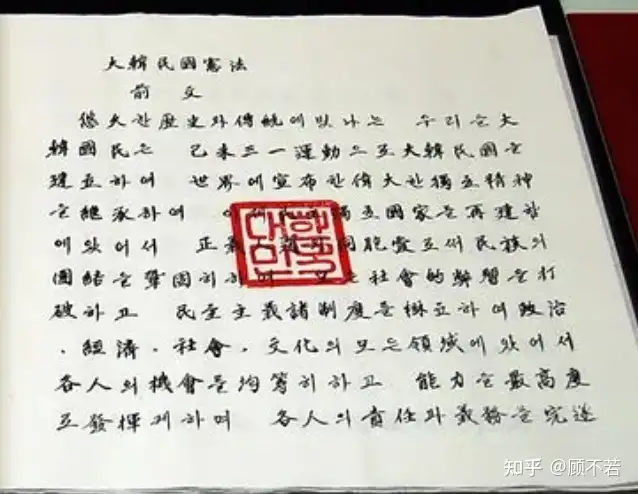 大韓民國憲法
前文
悠久한 歷史와 傳統에 빛나는 우리들 大
韓國民은 己未三一運動으로 大韓民國을
建立하여 世界에 宣布한 偉大한 獨立精神
을 繼承하여 이제 民主獨立國家를 再建함
에 있어서 正義人道와 同胞愛로써 民族의
團結을 鞏固히 하며 모든 社會的弊習을 打
破하고 民主主義諸制度를 樹立하여 政治
、經濟、社會、文化의 모든 領域에 있어서
各人의 機會를 均等히 하고 能力을 最高度
로 發揮케 하며 各人의 責任과 義務를 完遂
대한
민국
知乎 @顾不若